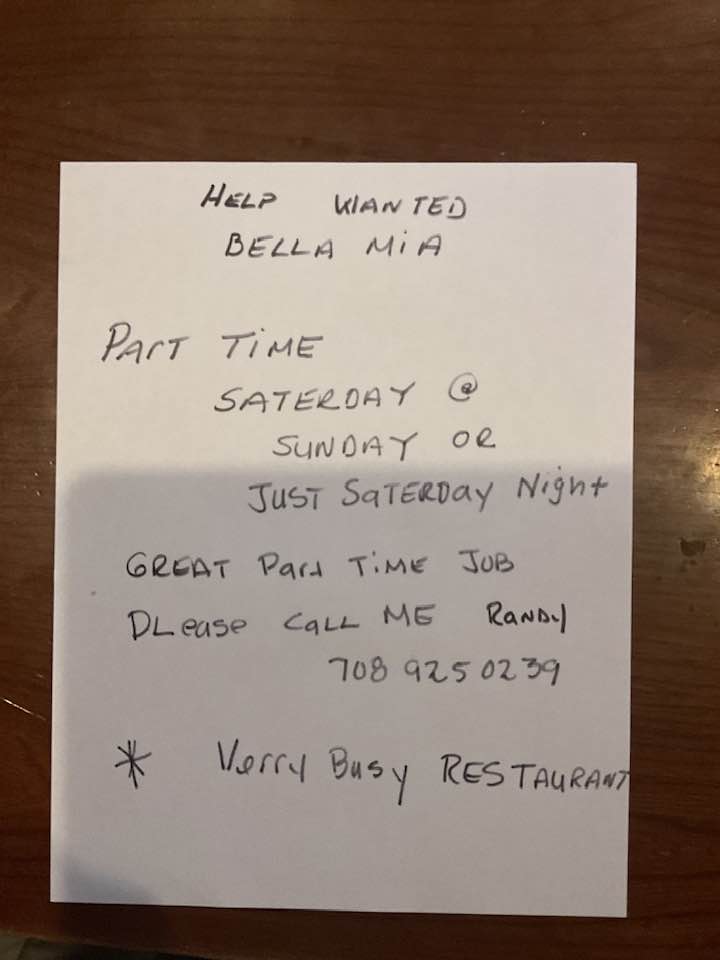 HELP WANTED
BELLA MiA
PArT TiME
SATERDAY @
SUNDAY OR
JUST SaTERDay Night
GREAT Part TiME JOB
PLease CaLL ME RaNDy
708 925 0239
* Verry Busy RESTAURANT